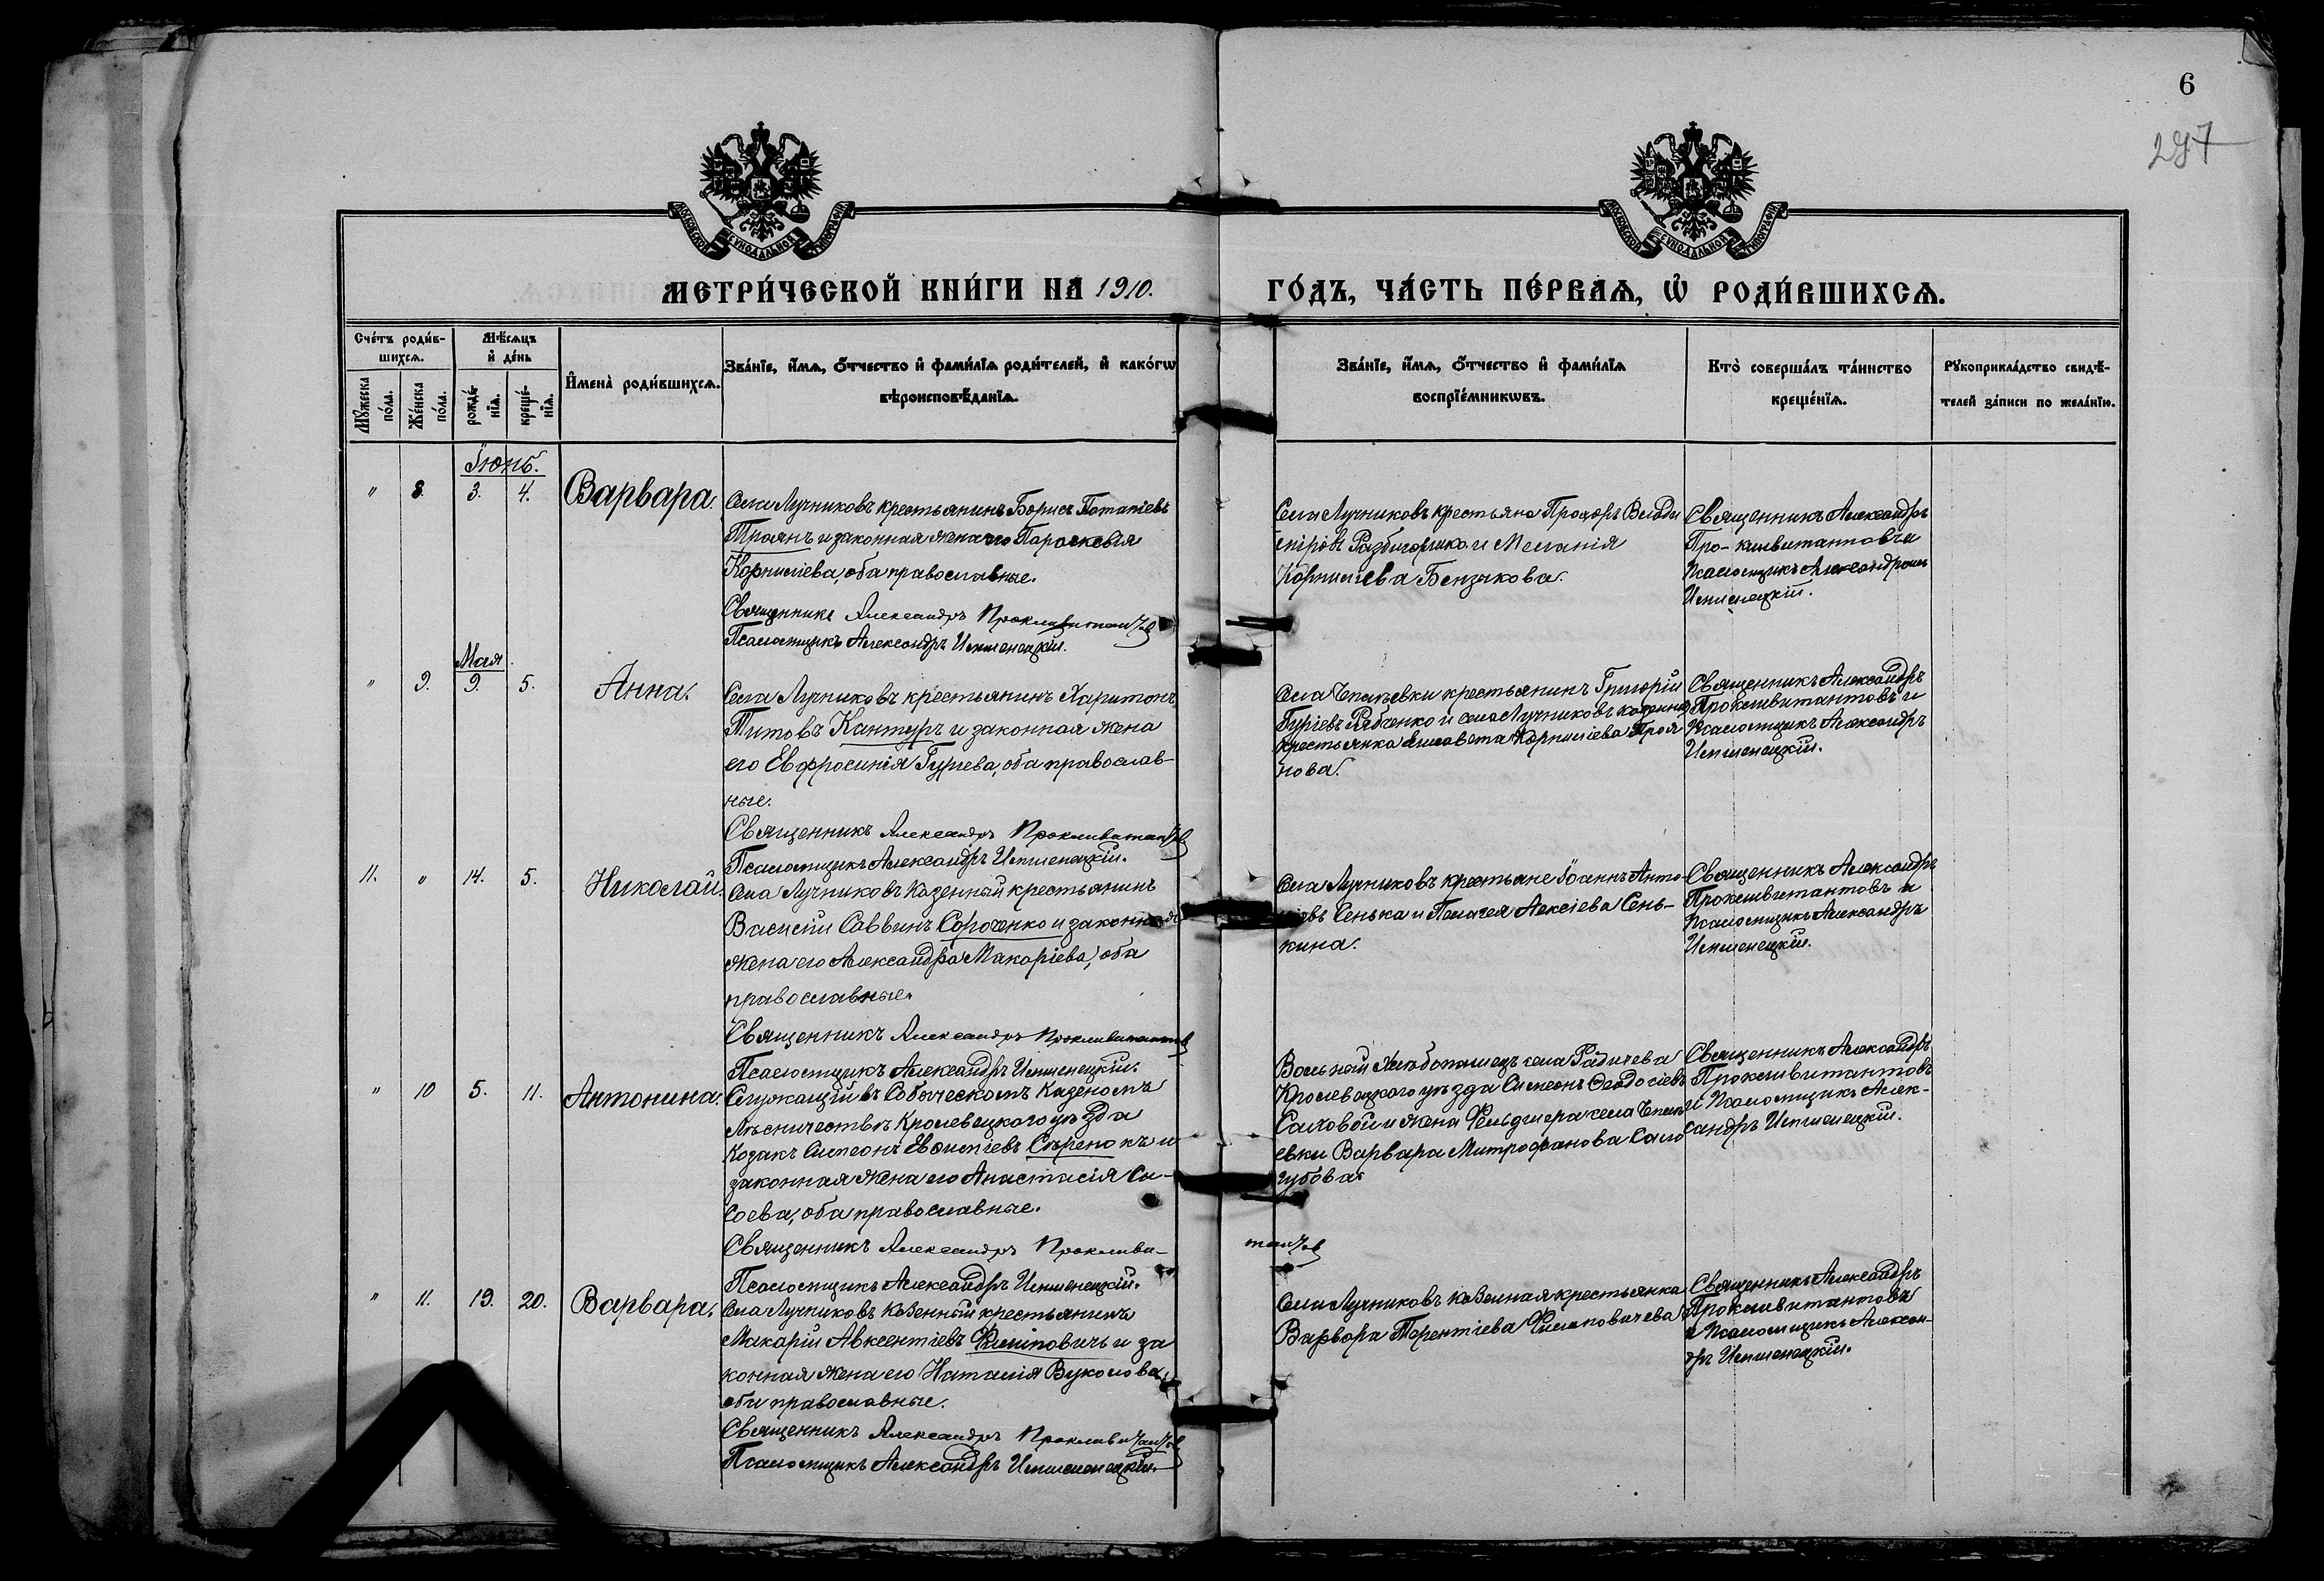 6
297
МОСКОВСКОЙ СѴНОДАЛЬНОЙ ТИПОГРАФІИ
МОСКОВСКОЙ СѴНОДАЛЬНОЙ ТИПОГРАФІИ
МЕТРИ́ЧЕСКОЙ КНИ́ГИ НА 1910.
ГО́ДЪ, ЧА́СТЬ ПЕ́РВАѦ, Ѡ РОДИ́ВШИХСѦ.
Сче́тъ роди́в-
шихсѧ.
Мѣ́сѧцъ
и҆ де́нь
Мꙋ́жеска
по́ла.
Же́нска
по́ла.
рожде́-
нїѧ.
креще́-
нїѧ.
И҆мена̀ роди́вшихсѧ.
Зва́нїе, и҆́мѧ, ѻ҆́тчество и҆ фами́лїѧ роди́телей, и҆ како́гѡ
вѣроисповѣ́данїѧ.
Зва́нїе, и҆́мѧ, ѻ҆́тчество и҆ фами́лїѧ
воспрїе́мникѡвъ.
Кто̀ соверша́лъ та́инство
креще́нїѧ.
Рꙋкоприкла́дство свидѣ́-
телей за́писи по жела́нїю.
Іюнь.
" 8. 3. 4. Варвара.
Села Лучниковъ крестьянинъ Борисъ Потапіевъ
Троянъ и законная жена его Параскевія
Корниліева, оба православные.
Священникъ Александръ Прокливитантовъ
Псаломщикъ Александръ Иншенецкій.
Села Лучниковъ крестьяне Прохоръ Влади
міровъ Разбигорика и Меланія
Корниліева Бензыкова.
Священникъ Александръ
Про-кливитантовъ и
псаломщикъ Александръ
Иншенецкій.
Мая
" 9. 9. 5. Анна.
Села Лучниковъ крестьянинъ Харитонъ
Титовъ Кантуръ и законная жена
его Евфросинія Гуріева, оба православ-
ные.
Священникъ Александръ Прокливитантовъ
Псаломщикъ Александръ Иншенецкій.
Села Чепліевки крестьянинъ Григорій
Гуріевъ Рабченко и села Лучниковъ
крестьянка Елисавета Корниліева Троя
нова.
Священникъ Александръ
Прокливитантовъ и
псаломщикъ Александръ
Иншенецкій.
11. " 14. 5. Николай.
Села Лучниковъ казенный крестьянинъ
Василій Саввинъ Сороченко и законная
жена его Александра Макаріева, оба
православные.
Священникъ Александръ Прокливитантовъ
Псаломщикъ Александръ Иншенецкій.
Села Лучниковъ крестьяне Іоаннъ Анто-
овъ Сенька и Пелагея Алексіева Сень-
кина.
Священникъ Александръ
Прокливитантовъ и
псаломщикъ Александръ
Иншенецкій.
" 10 5. 11. Антонина.
Служащій въ Собическомъ Казеномъ
лѣсничествѣ Кролевецкого уѣзда
Козакъ Симеонъ Евфиміевъ Сѣренокъ и
законная жена его Анастасія Си-
соева, оба православные.
Священникъ Александръ Прокливи-
тантовъ
Псаломщикъ Александръ Иншенецкій.
Вольный хлѣбопашецъ села Радичева
Кролевецкого уѣзда Симеонъ Ѳеодосіевъ
Саховой и жена Фельдшера села Чепли
евки Варвара Митрофанова Сало
губова.
Священникъ Александръ
Прокливитантовъ
и псаломщикъ Алек-
сандръ Иншенецкій.
" 11. 19. 20. Варвара.
Села Лучниковъ казенный крестьянинъ
Макарій Авксентіевъ Филиповичъ и за
конная жена его Наталія Вуколова,
оба православные.
Священникъ Александръ Прокливитантовъ
Псаломщикъ Александръ Иншенецкій.
Села Лучниковъ казенная крестьянка
Варвара Терентіева Филиповичева
Священникъ Александръ
Прокливитантовъ
и псаломщикъ Алексан-
дръ Иншенецкій.